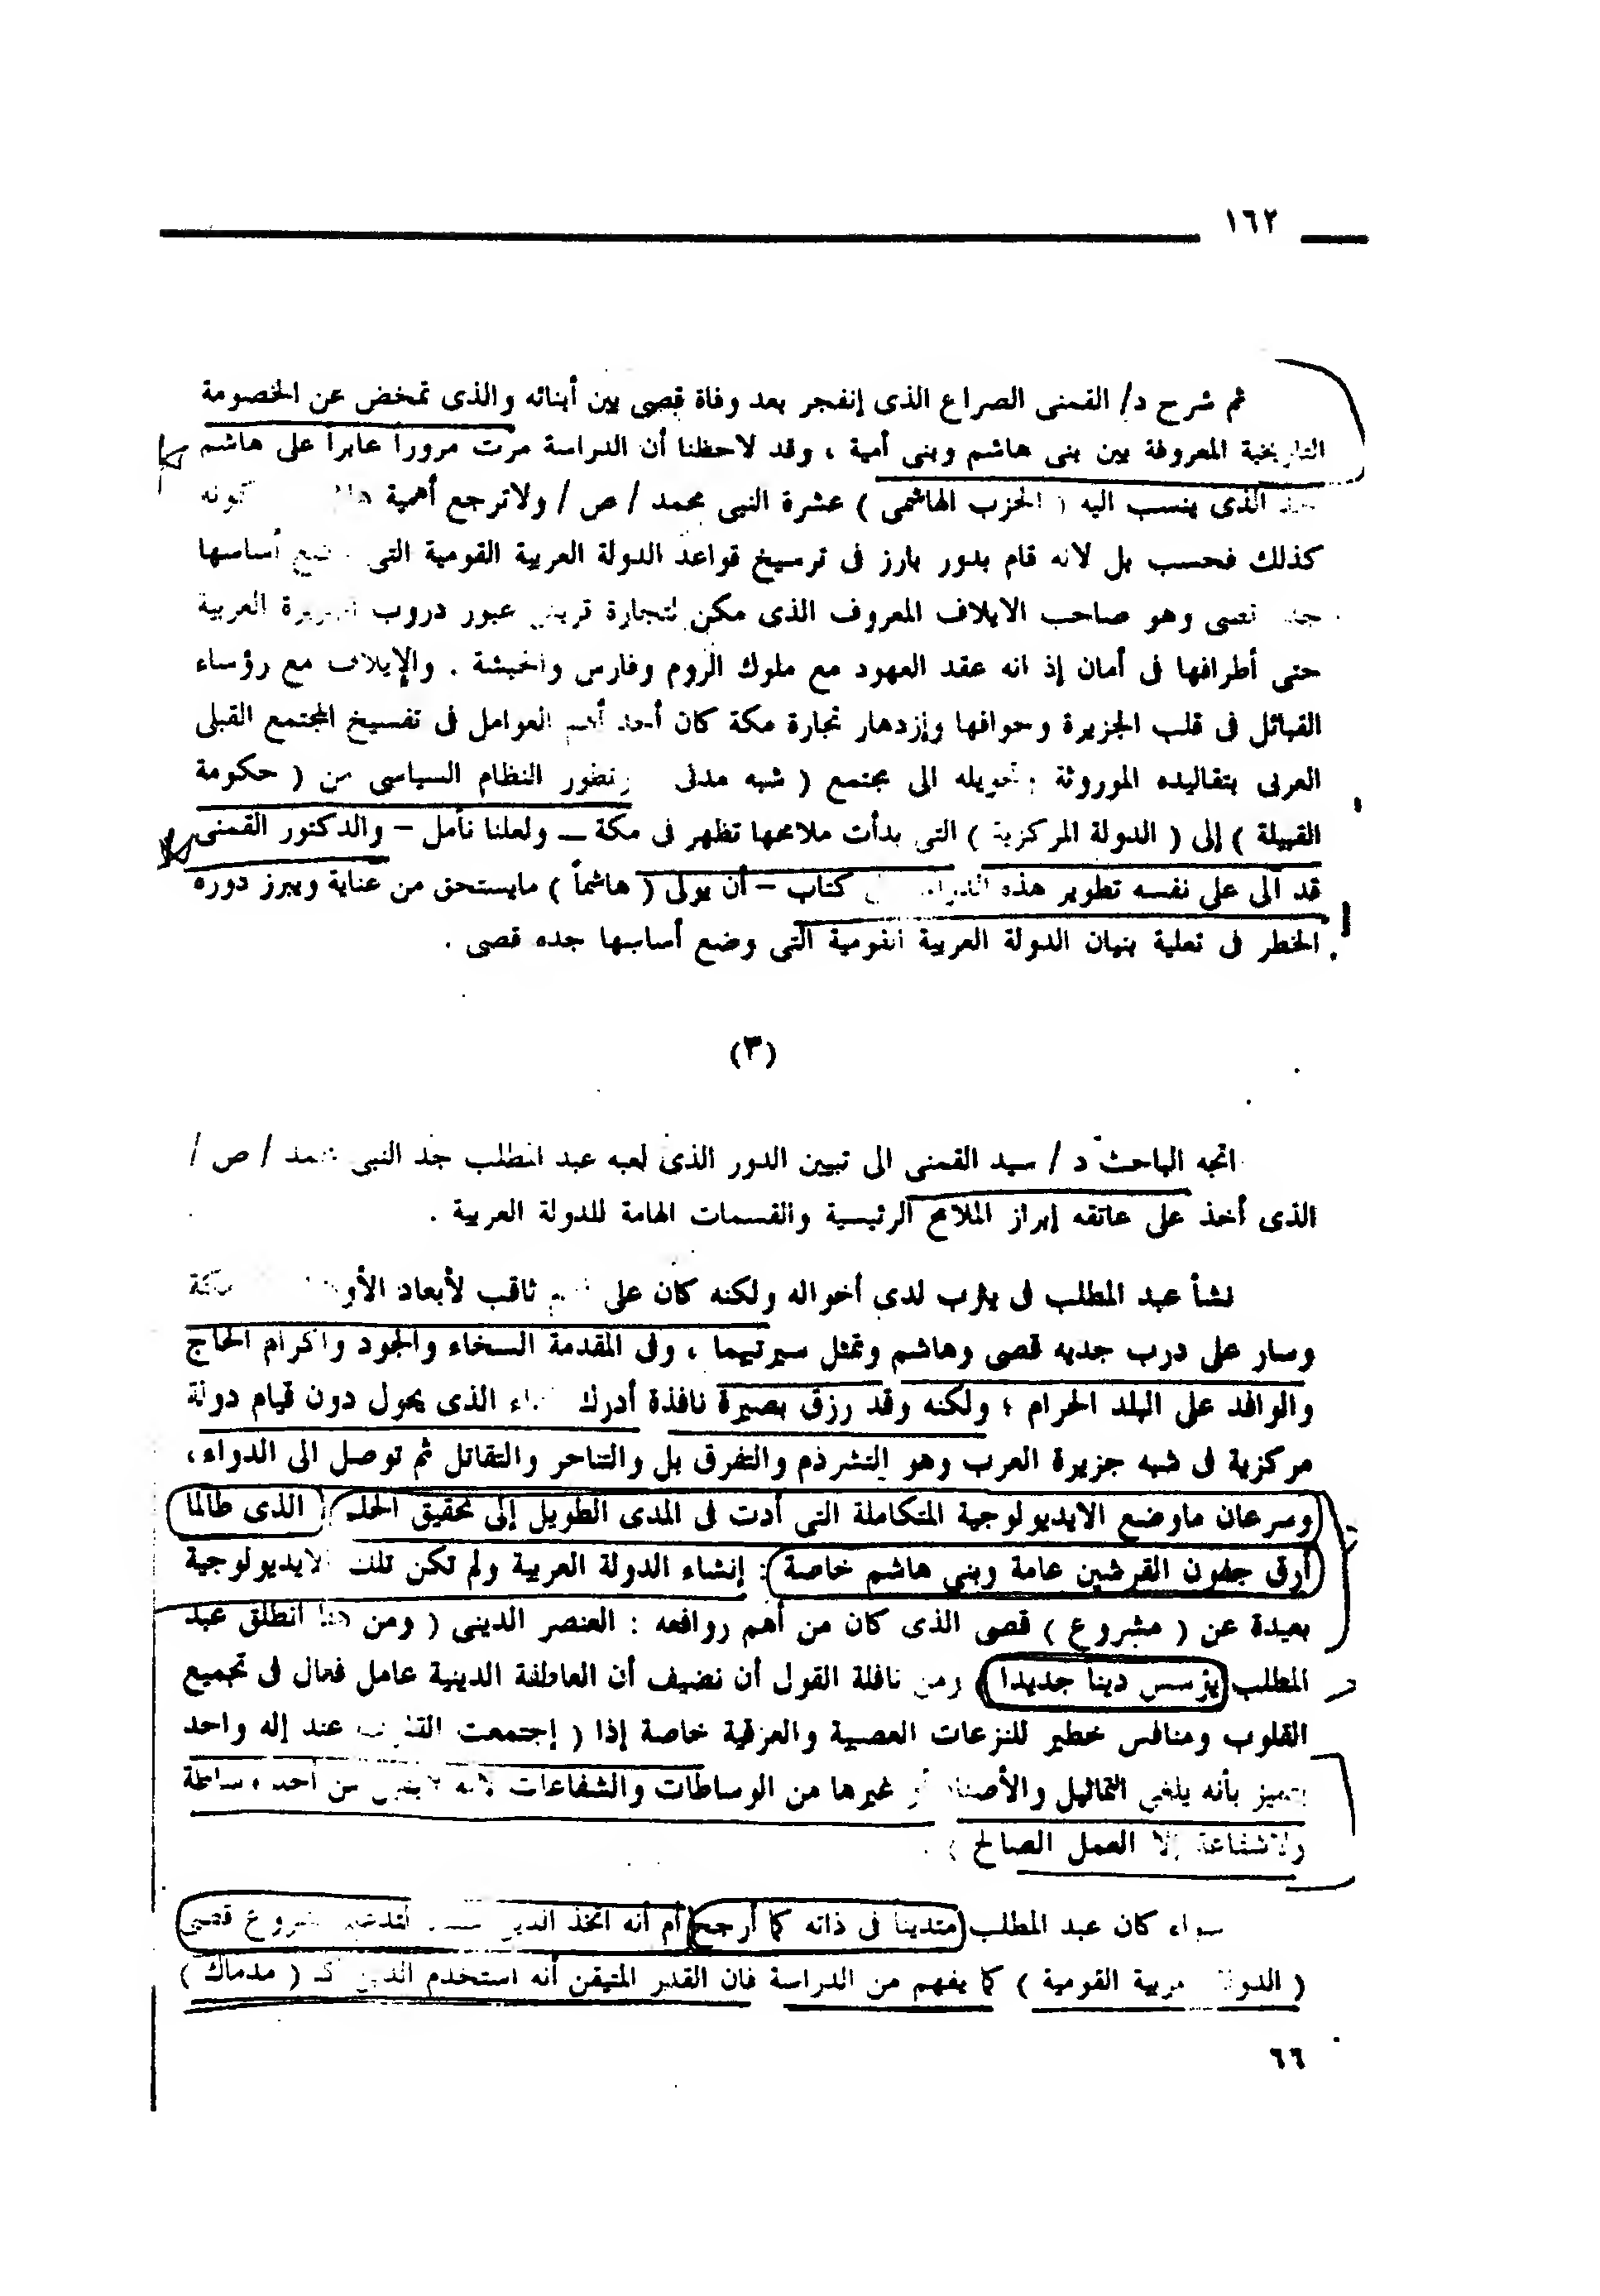 ١٦٢
ثم شرح د/ القمنى الصراع الذى إنفجر بعد وفاة قصى بين أبنائه والذى تمخض عن الخصومة
التاريخية المعروفة بين بنى هاشم وبنى أمية ، وقد لاحظنا أن الدراسة مرت مروراً عابراً على هاشم
الذى ينسب اليه ( الحزب الهاشمى ) عشرة النبى محمد / ص / ولاترجع أهمية كونه
كذلك فحسب بل لانه قام بدور بارز فى ترسيخ قواعد الدولة العربية القومية التى أساسها
قصى وهو صاحب الايلاف المعروف الذى مكن لتجارة قريش عبور دروب الجزيرة العربية
حتى أطرافها فى أمان إذ انه عقد العهود مع ملوك الروم وفارس والحبشة . والإيلاف مع رؤساء
القبائل فى قلب الجزيرة وحوافها وإزدهار تجارة مكة كان أحد أهم العوامل فى تفسيخ المجتمع القبلى
العربى بتقاليده الموروثة وتحويله الى مجتمع ( شبه مدنى وتطور النظام السياسى من ( حكومة
القبيلة ) إلى ( الدولة المركزية ) التى بدأت ملامحها تظهر فى مكة ــ ولعلنا نأمل – والدكتور القمنى
قد آلى على نفسه تطوير هذه كتاب – أن يولى ( هاشماً ) مايستحق من عناية ويبرز دوره
الخطر فى تعلية بنيان الدولة العربية القومية التى وضع أساسها جده قصى .
(٣)
اتجه الباحث د / سيد القمنى الى تبيين الدور الذى لعبه عبد المطلب جد النبى محمد / ص /
الذى أخذ على عاتقه إبراز الملامح الرئيسية والقسمات الهامة للدولة العربية .
نشأ عبد المطلب فى يثرب لدى أخواله ولكنه كان على ثاقب لأبعاد مكة
وسار على درب جديه قصى وهاشم وتمثل سيرتيهما ، وفى المقدمة السخاء والجود واكرام الحاج
والوافد على البلد الحرام ؛ ولكنه وقد رزق بصيرة نافذة أدرك الذى يحول دون قيام دولة
مركزية فى شبه جزيرة العرب وهو التشرذم والتفرق بل والتناحر والتقاتل ثم توصل الى الدواء ،
وسرعان ماوضع الايديولوجية المتكاملة التى أدت فى المدى الطويل إلى تحقيق الحلم الذى طالما
أرق جفون القرشين عامة وبنى هاشم خاصة : إنشاء الدولة العربية ولم تكن تلك الايديولوجية
بعيدة عن ( مشروع ) قصى الذى كان من أهم روافعه : العنصر الدينى ( ومن هنا انطلق عبد
المطلب يؤسس دينا جديدا ) ومن نافلة القول أن نضيف أن العاطفة الدينية عامل فعال فى تجميع
القلوب ومنافس خطير للنزعات العصبية والعرقية خاصة إذا ( إجتمعت القلوب عند إله واحد
يتميز بأنه يلغى التماثيل والأصنام أو غيرها من الوساطات والشفاعات لانه لايقبل من أحد وساطة
ولاشفاعة إلا العمل الصالح ) .
سواء كان عبد المطلب متديناً فى ذاته كما أرجح أم أنه اتخذ الدين لتدعيم مشروع قصى
( الدولة العربية القومية ) كما يفهم من الدراسة فان القدر المتيقن أنه استخدم الدين كـ ( مدماك )
٦٦